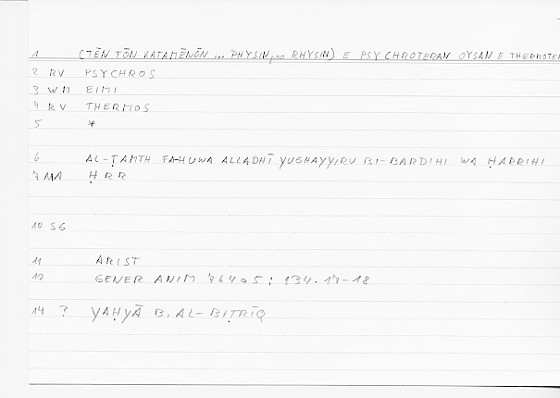 1 (TĒN TŌN KATAMĒNŌN ... PHYSIN, pro RHYSIN) E PSYCHROTERAN OYSAN E THERMOTE
2 RV PSYCHROS
3 WM EIMI
4 RV THERMOS
5 *
6 AL-ṬAMTH FA-HUWA ALLADHĪ YUGHAYYIRU BI-BARDIHI WA ḤARRIHI
7 MA ḤRR
10 SG
11 ARIST
12 GENER ANIM 764a5 : 134.17-18
14 ? YAḤYĀ B. AL-BIṬRĪQ